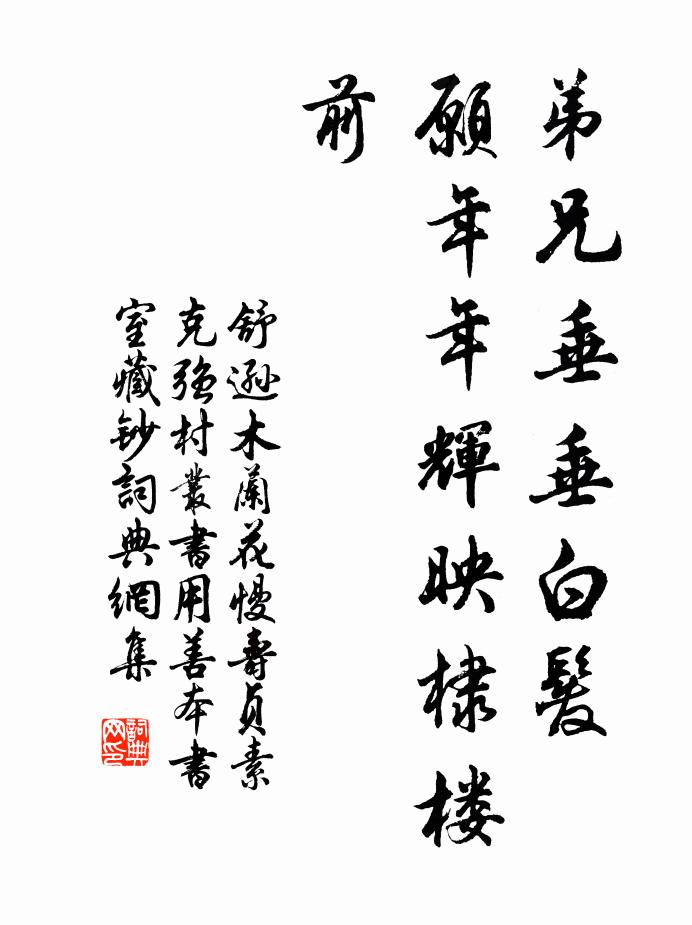 弟兄垂垂白髮
願年年輝映棣楼
前
舒遜木蘭花慢壽貞素
克強村叢書用善本書
室藏鈔詞典網集
詞典网印